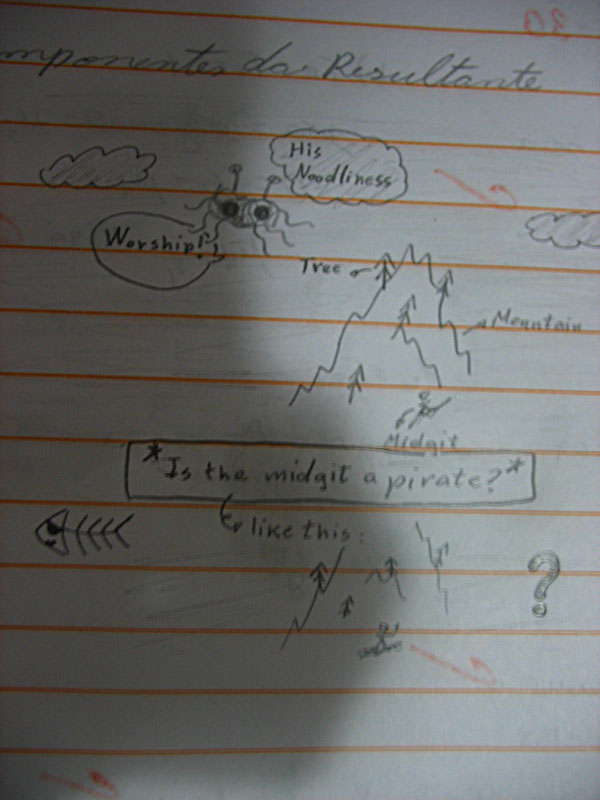 mponentes da Resultante
His
Noodliness
Worship!!
Tree
Mountain
Midgit
*Is the midgit a pirate?*
like this:
?